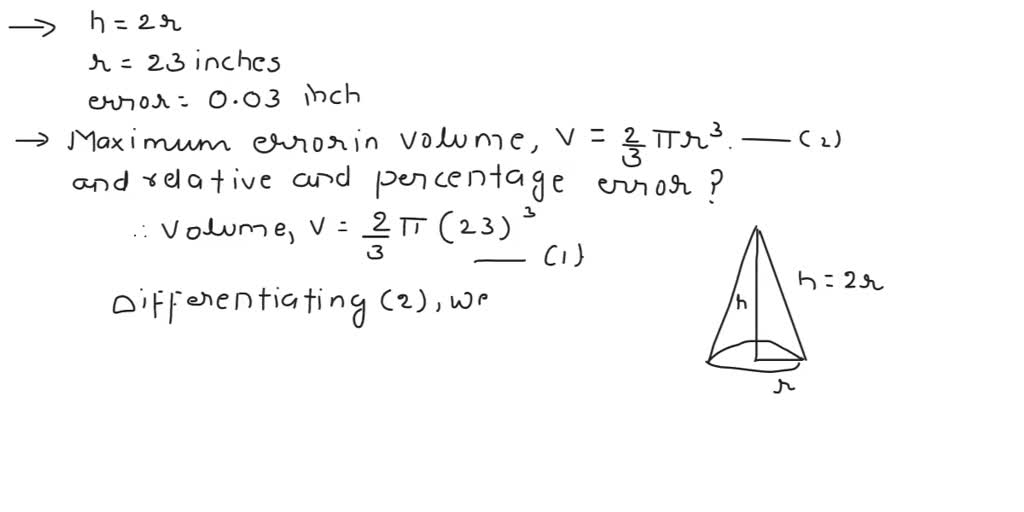 → h = 2r
r = 23 inches
error = 0.03 inch
→ Maximum error in volume, V = 2/3 πr³. — (2)
and relative and percentage error ?
∴ Volume, V = 2/3 π (23)³ — (1)
Differentiating (2), we
h
h = 2r
r